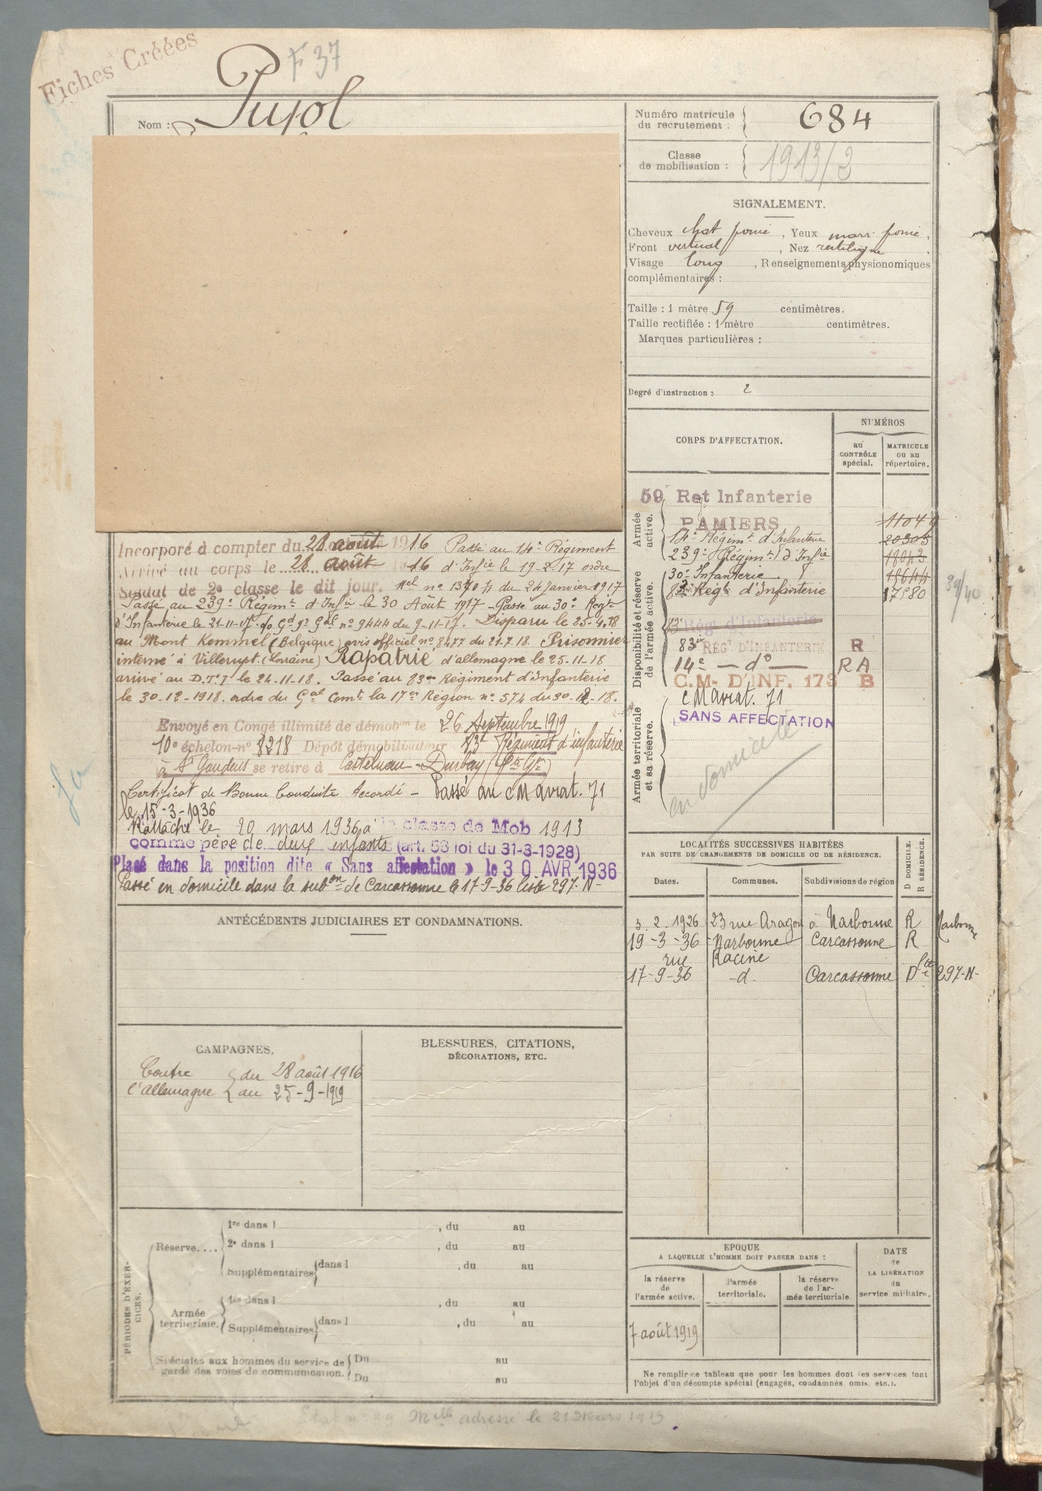 Fiches Créées
F 37
Nom : Pujol
Incorporé à compter du 28 août 1916 Passé au 14e Régiment
Arrivé au corps le 28 août 16 d'Infie le 19-2-17 ordre
Soldat de 2e classe le dit jour. du 24 janvier 1917
Passé au 239e Régimt d'Infie le 30 Août 1917 - Passé au 30e Régt
d'Infanterie le 21-11-17 no 9444 du 9-11-17. Disparu le 25-4-18
au Mont Kemmel (Belgique) avis officiel no 8477 du 21.7.18. Prisonnier
interné à Villerupt (Lorraine) Rapatrié d'allemagne le 25-11-18
arrivé au le 24-11-18. Passé au 83me Régiment d'Infanterie
le 30-12-1918. ordre du Gal Comt la 17e Région no 574 du 30-12-18.
Envoyé en Congé illimité de démobon le 26 Septembre 1919
10e échelon - no 8218 Dépôt démobilisateur Régiment d'infanterie
à St Gaudens se retire à Castelnau-Durban
Certificat de Bonne Conduite Accordé - Passé au cM ariat. 71
le 15-3-1936
Rattaché le 29 mars 1936 à la classe de Mob 1913
comme père de deux enfants (art. 58 loi du 31-3-1928)
Placé dans la position dite « Sans affectation » le 30 AVR 1936
Passé en domicile dans la subon de Carcassonne le 17-9-36 liste 297-N-
ANTÉCÉDENTS JUDICIAIRES ET CONDAMNATIONS.
CAMPAGNES.
Contre du 28 août 1916
l'Allemagne au 25-9-1919
BLESSURES, CITATIONS,
DÉCORATIONS, ETC.
PÉRIODES D'EXERCICES.
Réserve.... 1re dans l , du au
2e dans l , du au
Supplémentaires dans l , du au
Armée territoriale. 1re dans l , du au
Supplémentaires dans l , du au
Spéciales aux hommes du service de Du au
garde des voies de communication. Du au
Numéro matricule
du recrutement : 684
Classe
de mobilisation : 1913/2
SIGNALEMENT.
Cheveux chat foncé, Yeux marr foncé,
Front vertical, Nez rectiligne
Visage long, Renseignements physionomiques
complémentaires :
Taille : 1 mètre 59 centimètres.
Taille rectifiée : 1 mètre centimètres.
Marques particulières :
Degré d'instruction : 2
CORPS D'AFFECTATION.
NUMÉROS
au
CONTRÔLE
spécial.
MATRICULE
ou au
répertoire.
Armée
active.
59 Ret Infanterie
PAMIERS 11049
14e Régimt d'Infanterie 20305
239e Régimt d'Infie
30e Infanterie
83e Régt d'Infanterie 17580
Disponibilité et réserve
de l'armée active.
Rég. d'Infanterie
83e REGt D'INFANTERIE R
14e — do — RA
C.M. D'INF. 173 B
Armée territoriale
et sa réserve.
cM ariat. 71
SANS AFFECTATION
en domicile
LOCALITÉS SUCCESSIVES HABITÉES
PAR SUITE DE CHANGEMENTS DE DOMICILE OU DE RÉSIDENCE.
D DOMICILE.
R RÉSIDENCE.
Dates. Communes. Subdivisions de région
5. 2. 1926 23 rue Aragon à Narbonne R Narbonne
19-3-36 Narbonne Carcassonne R
rue Racine
17-9-36 -d- Carcassonne D 297-N-
EPOQUE
A LAQUELLE L'HOMME DOIT PASSER DANS :
la réserve
de
l'armée active.
l'armée
territoriale.
la réserve
de l'ar-
mée territoriale
DATE
de
LA LIBÉRATION
du
service militaire.
7 août 1919
Ne remplir ce tableau que pour les hommes dont les services font
l'objet d'un décompte spécial (engagés, condamnés, omis, etc.).
adressé le